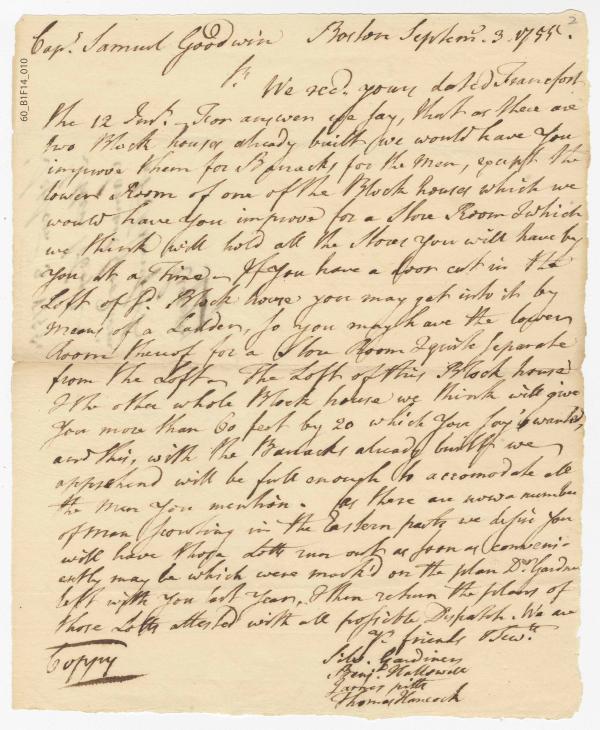 2
60_B1F14_010
Cap.t Samuel Goodwin Boston Septem.r 3. 1755.
Sr
We rec.d yours dated Francfort
the 12 Inst. For answer we say, that as there are
two Block houses already built, we would have You
improve them for Barracks for the Men, except the
lower Room of one of the Block houses which we
would have You improve for a Store Room & which
we think will hold all the Stores You will have by
You at a Time. If You have a door cut in the
Loft of sd. Block house you may get into it by
means of a Ladder, so you may have the lower
Room thereof for a Store Room & quite seperate
from the Loft. The Loft of this Block house
& the other whole Block house we think will give
You more than 60 feet by 20 which You say is wanted,
and this, with the Barracks already built we
apprehend will be full enough to accomodate all
the men You mention. as there are now a number
of men scouting in the Eastern parts, we desire You
will have those Lotts run out as soon as conveni-
ently may be which were mark'd on the plan Dr. Gardiner
left with You last Year, & then return the plans of
those Lotts attested with all possible Dispatch. We are
Yr. friends & Serv.ts
Silv. Gardiners
Benj.a Hallowell
James pitts
Thomas Hancock
Coppy